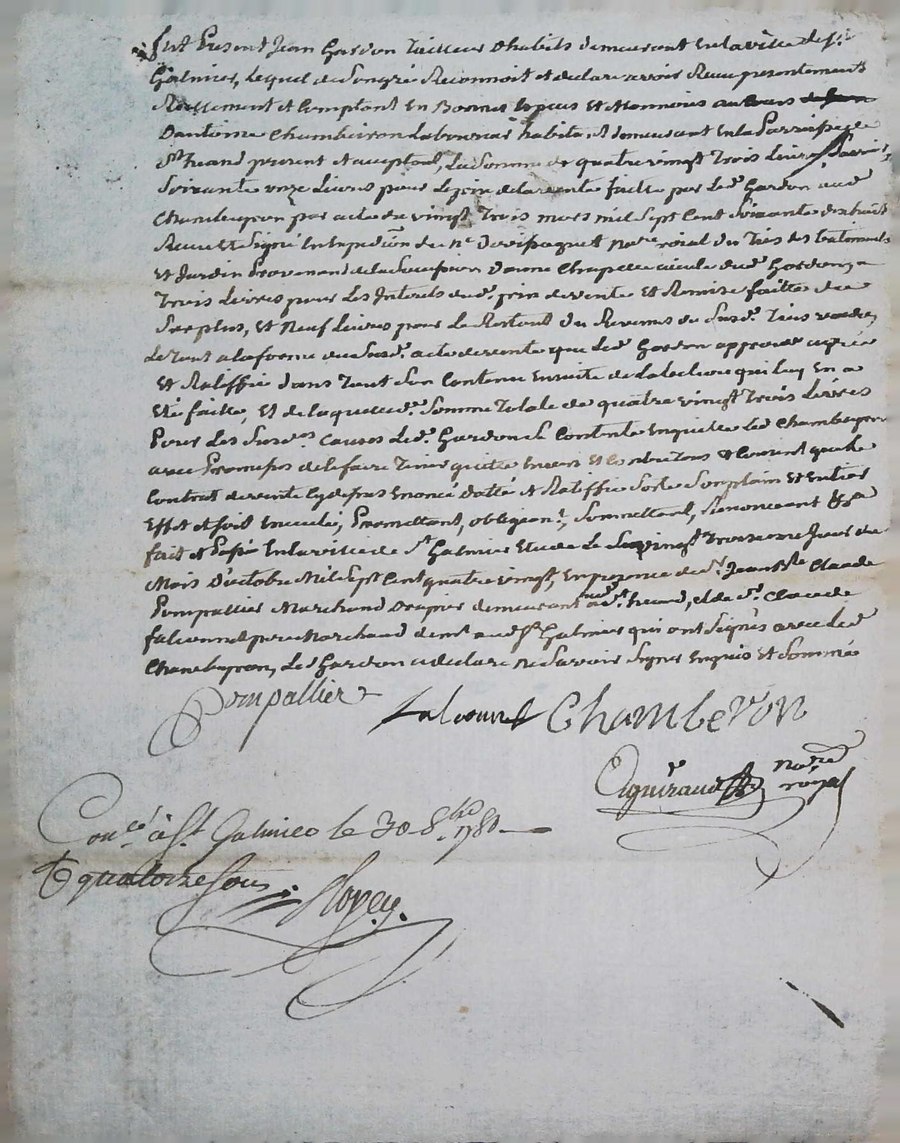 fut Present Jean Gardon Tailleur d'habits demeurant En la ville de St
Galmier, Lequel de Son gré Reconnoit et declare avoir Receu presentement
Reellement et Comptant En Bonnes Especes Et Monnoies au Cours
D'antoine Chambeiron Laboureur habitant demeurant En la Parroisse de
St heand present et acceptant, La Somme de quatre vingt Trois Livres, Savoir
Soixante onze Livres pour Le prix de la vente faitte par Led Gardon aud
Chambeyron par acte du vingt Trois mars mil Sept Cent Soixante dix huit
Receu Et Signé En Expedion du Me notre roial du Tres des batiments
Et Jardin Provenand de la Succession Danne Chapelle aieule dud Gardon,
Trois Livres pour Les Interets dud. prix de vente Et Remise faitte du
Surplus, Et Neuf Livres pour Le Restant du Revenus du Susd. Tiers vendu,
Le Tout a la forme du Susd. acte de vente que Led Gardon approuve
Et Ratiffie dans Tout Son Contenu Ensuite de La Lecture qui Luy En a
Eté faitte, Et de laquelle d. Somme Totale de quatre vingt Trois Livres
Pour Les Susd.es Causes Led. Gardon Se Contente En quitte Led Chambeyron
avec Promesses de le faire Tenir quitte Envers Et Contre Tous & Consent que le
Contrat de vente Cy dessus Enoncé datté et Ratiffié Sorte Son plain Et Entier
Effet et Soit Executé, Promettant, obligeant, Soumettant, Renonceant &a
fait et Passé En la ville de St Galmier Etude Le vingt Troisieme Jour du
Mois D'octobre Mil Sept Cent quatre vingt, En presence de Sr. Jean Bte Claude
Pompallier Marchand Drapier demeurant aud. St heand, et de Sr. Claude
falconnet pere Marchand demt aud St Galmier qui ont Signés avec Led
Chambeyron, Led Gardon a declaré Ne Savoir Signer Enquis Et Sommé
Pompallier
falconnet Chamberon
Eguiraud notre
royal
Con.lé à St Galmier le 30 8bre 1780
quatorze Sous